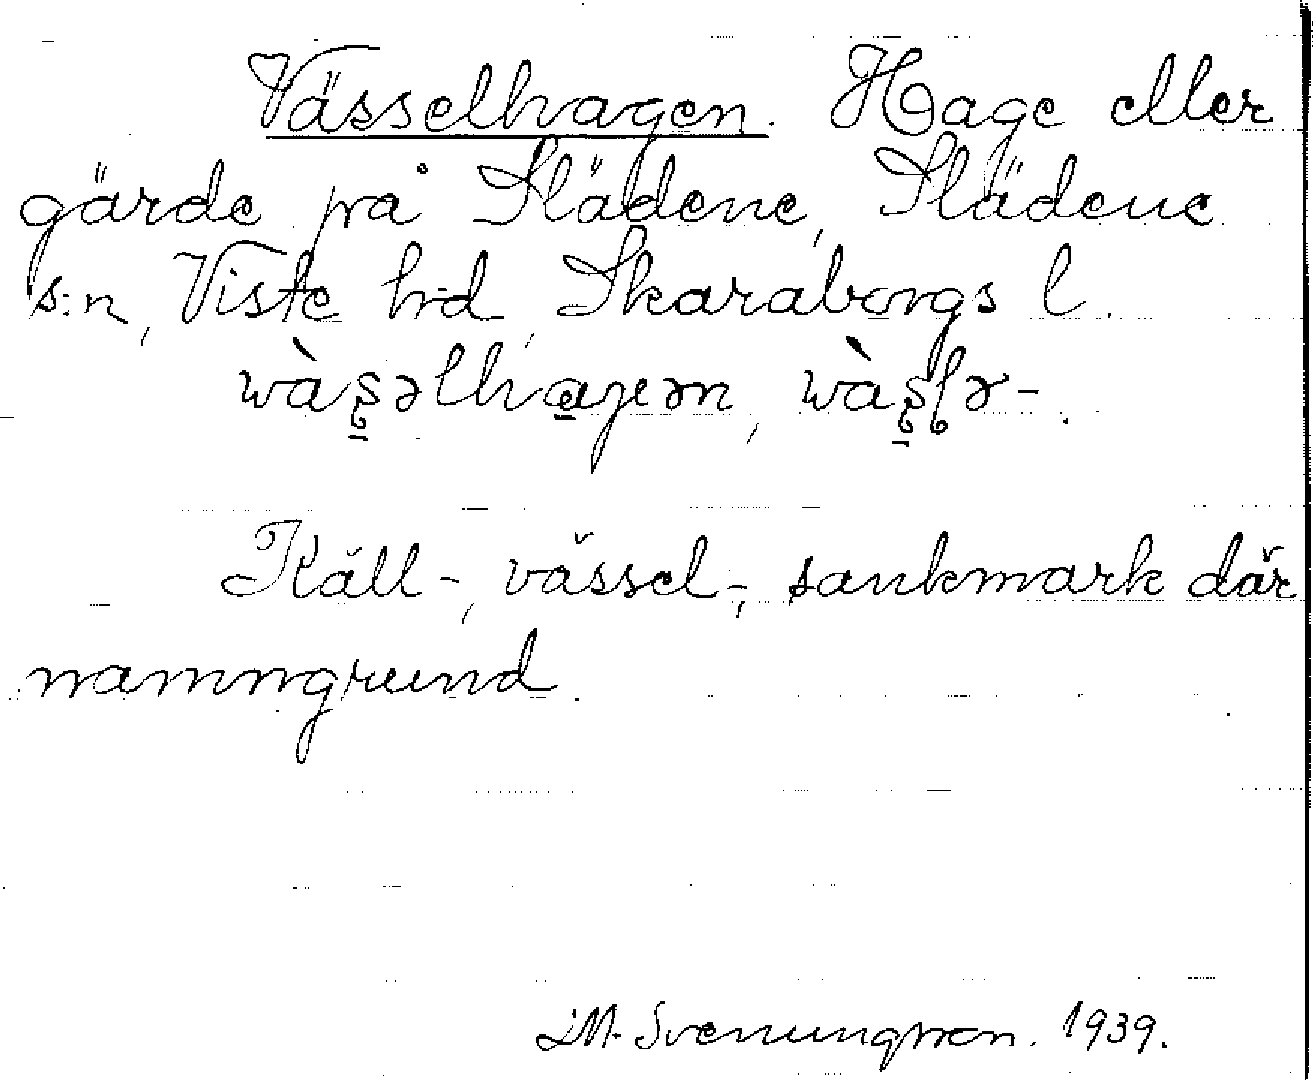 Vässelhagen. Hage eller
gärde på Slädene, Slädene
s:n, Viste hd, Skaraborgs l.
Käll-, vässel-, sankmark där
namngrund.
M. Svenungsson. 1939.